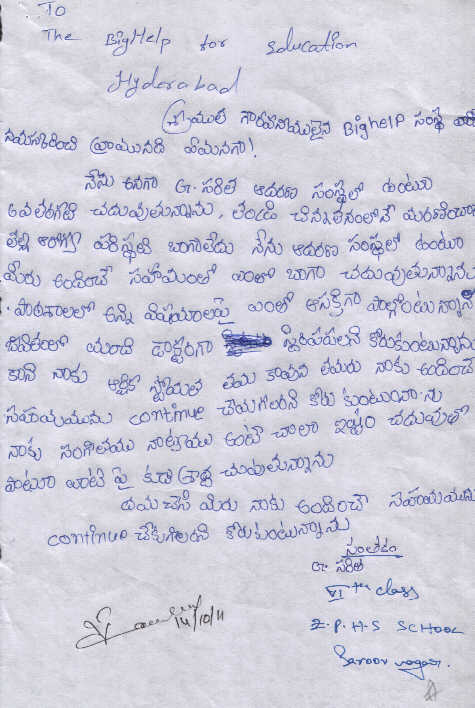 To
The BigHelp for Education
Hyderabad
గౌరవనీయులైన BigHelp సంస్థ వారికి
నమస్కరించి వ్రాయునది ఏమనగా!
నేను అనగా G. సరిత ఆదరణ సంస్థలో ఉంటూ
చదువుతున్నాను. తండ్రి చిన్నతనంలోనే మరణించాడు
తల్లి ఆరోగ్య పరిస్థితి బాగాలేదు నేను ఆదరణ సంస్థలో ఉంటూ
మీరు అందించే సహాయంతో ఎంతో బాగా చదువుతున్నాను
. పాఠశాలలో అన్ని విషయాలపై ఎంతో ఆసక్తిగా పాల్గొంటున్నాను
జీవితంలో మంచి డాక్టరుగా స్థిరపడాలని కోరుకుంటున్నాను
కాని నాకు ఆర్థిక స్తోమత లేదు కావున తమరు నాకు అందించే
సహాయమును continue చేయగలరని కోరుకుంటున్నాను
నాకు సంగీతము నాట్యము అంటే చాలా ఇష్టం చదువుతో
పాటూ వాటి పై కూడా శ్రద్ధ చూపుతున్నాను
దయచేసి మీరు నాకు అందించే సహాయమును
continue చేయగలరని కోరుకుంటున్నాను
సంతకం
G. సరిత
VI th class
Z.P.H.S SCHOOL
Saroor nagar.
14/10/11